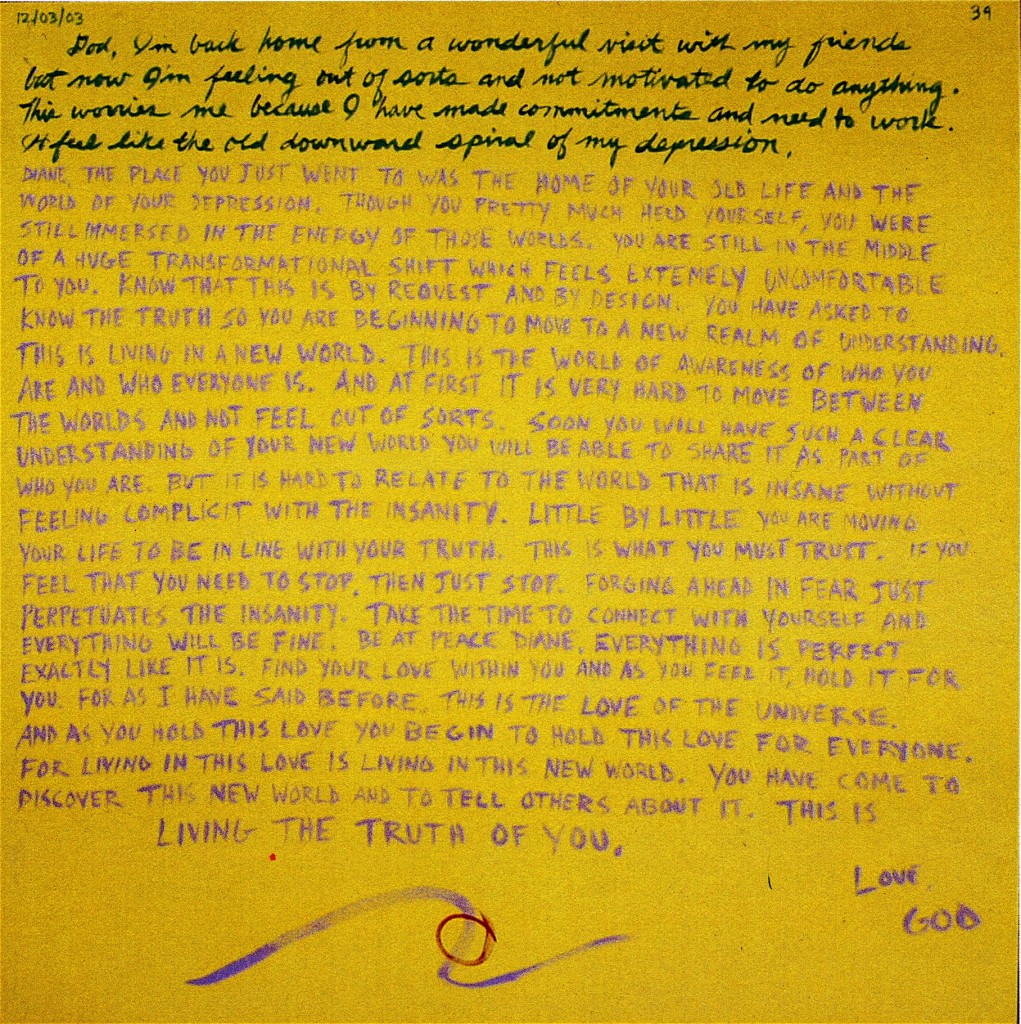 12/03/03
39
God, I'm back home from a wonderful visit with my friends
but now I'm feeling out of sorts and not motivated to do anything.
This worries me because I have made commitments and need to work.
It feel like the old downward spiral of my depression.
DIANE, THE PLACE YOU JUST WENT TO WAS THE HOME OF YOUR OLD LIFE AND THE
WORLD OF YOUR DEPRESSION. THOUGH YOU PRETTY MUCH HELD YOURSELF, YOU WERE
STILL IMMERSED IN THE ENERGY OF THOSE WORLDS. YOU ARE STILL IN THE MIDDLE
OF A HUGE TRANSFORMATIONAL SHIFT WHICH FEELS EXTEMELY UNCOMFORTABLE
TO YOU. KNOW THAT THIS IS BY REQUEST AND BY DESIGN. YOU HAVE ASKED TO
KNOW THE TRUTH SO YOU ARE BEGINNING TO MOVE TO A NEW REALM OF UNDERSTANDING.
THIS IS LIVING IN A NEW WORLD. THIS IS THE WORLD OF AWARENESS OF WHO YOU
ARE AND WHO EVERYONE IS. AND AT FIRST IT IS VERY HARD TO MOVE BETWEEN
THE WORLDS AND NOT FEEL OUT OF SORTS. SOON YOU WILL HAVE SUCH A CLEAR
UNDERSTANDING OF YOUR NEW WORLD YOU WILL BE ABLE TO SHARE IT AS PART OF
WHO YOU ARE. BUT IT IS HARD TO RELATE TO THE WORLD THAT IS INSANE WITHOUT
FEELING COMPLICIT WITH THE INSANITY. LITTLE BY LITTLE YOU ARE MOVING
YOUR LIFE TO BE IN LINE WITH YOUR TRUTH. THIS IS WHAT YOU MUST TRUST. IF YOU
FEEL THAT YOU NEED TO STOP, THEN JUST STOP. FORGING AHEAD IN FEAR JUST
PERPETUATES THE INSANITY. TAKE THE TIME TO CONNECT WITH YOURSELF AND
EVERYTHING WILL BE FINE. BE AT PEACE DIANE. EVERYTHING IS PERFECT
EXACTLY LIKE IT IS. FIND YOUR LOVE WITHIN YOU AND AS YOU FEEL IT, HOLD IT FOR
YOU. FOR AS I HAVE SAID BEFORE, THIS IS THE LOVE OF THE UNIVERSE.
AND AS YOU HOLD THIS LOVE YOU BEGIN TO HOLD THIS LOVE FOR EVERYONE.
FOR LIVING IN THIS LOVE IS LIVING IN THIS NEW WORLD. YOU HAVE COME TO
DISCOVER THIS NEW WORLD AND TO TELL OTHERS ABOUT IT. THIS IS
LIVING THE TRUTH OF YOU.
LOVE,
GOD